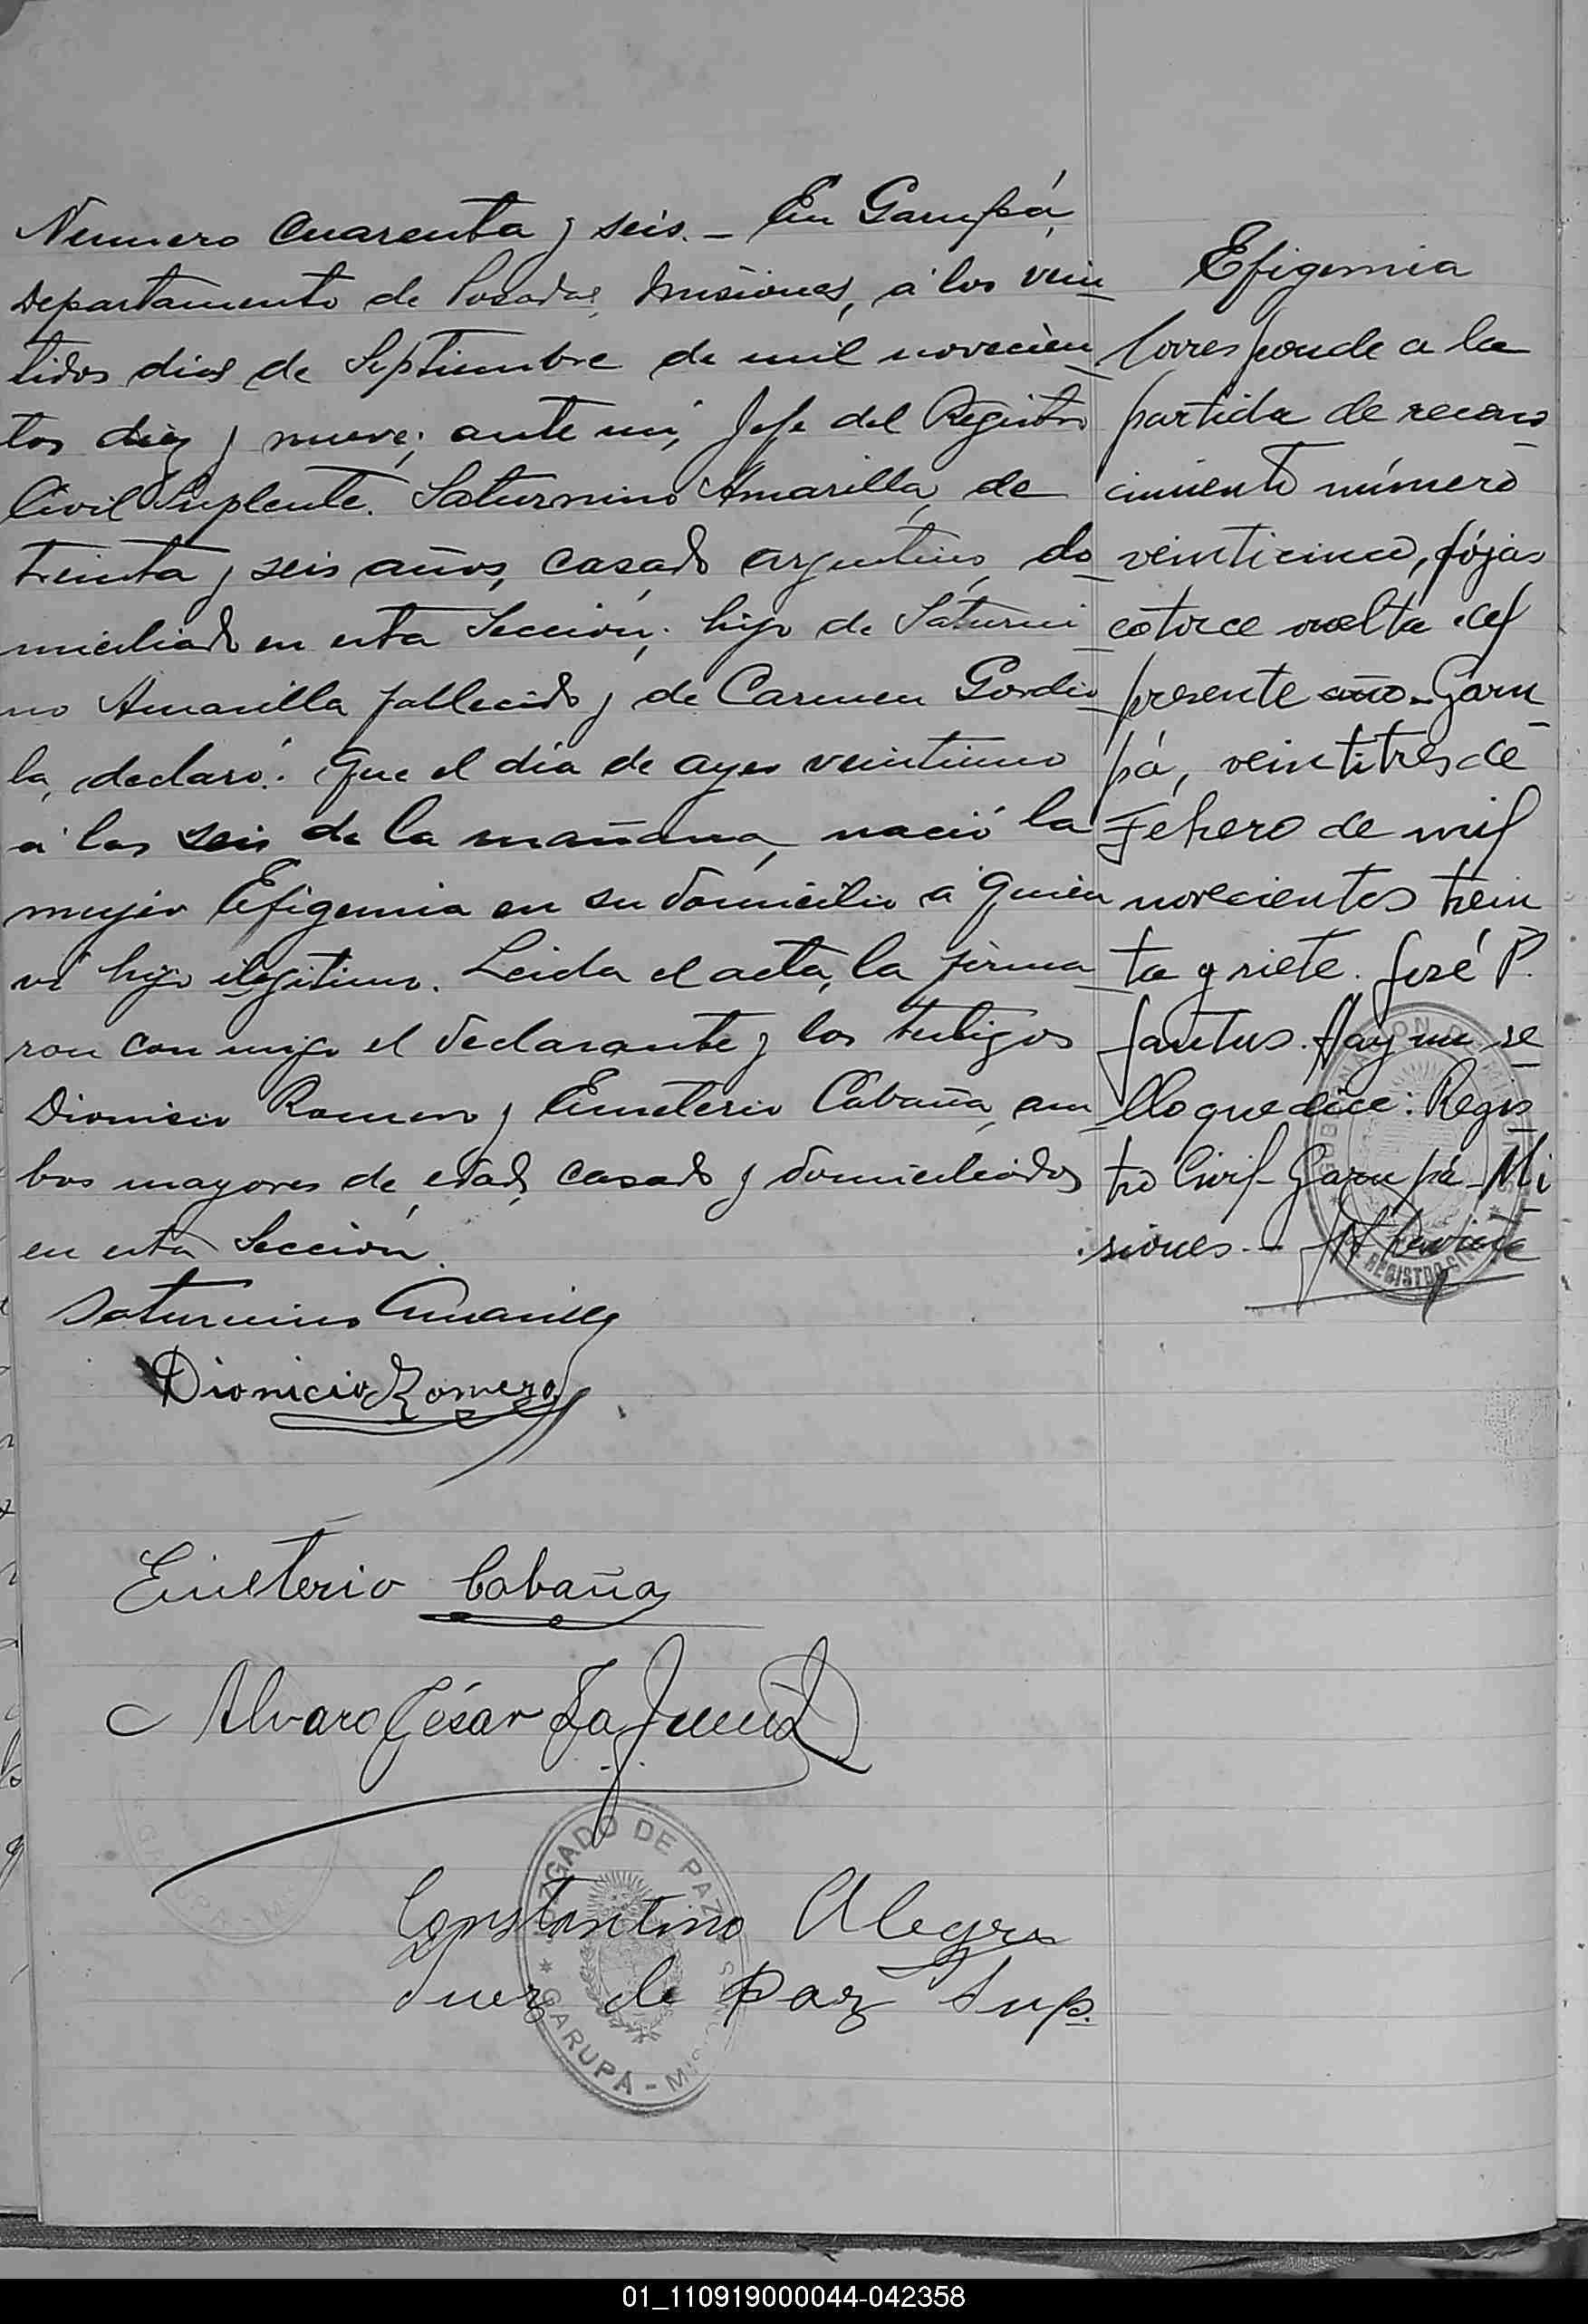 Numero cuarenta y seis. – En Garupá,
Departamento de Posadas, Misiones, á los vein
tidos dias de Septiembre de mil novecien
tos diez y nueve; ante mi, Jefe del Registro
Civil Suplente. Saturnino Amarilla, de
treinta y seis años, casado argentino, do
miciliado en esta Sección; hijo de Saturni
no Amarilla fallecido y de Carmen
la, declaró: Que el día de ayer veintiuno
á las seis de la mañana, nació la
mujer Efigenia en su domicilio á quien
hijo ilegitimo. Leida el acta, la firma
ron con migo el declarante y los testigos
Dionisio Romero y Emeterio Cabaña, am
bos mayores de edad, casado y domiciliados
en esta Sección.
Saturnino Amarilla
Dionicio Romero
Emeterio Cabaña
Alvaro César
Constantino Alegre
Juez de Paz Sup.
JUZGADO DE PAZ
GARUPÁ – MIS
Efigenia
Corresponde a la
partida de recono
cimiento número
veinticinco, fójas
catorce vuelta del
presente año. Garu
pá, veintitres de
Febrero de mil
novecientos trein
ta y siete. José P.
Santus. Hay un se
llo que dice: Regis
tro Civil – Garupá – Mi
siones. –
GOBERNACION DE MISIONES
REGISTRO CIVIL
01_110919000044-042358